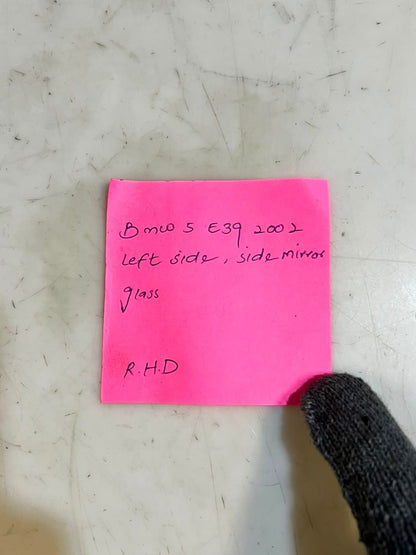 Bmw 5 E39 2002
left side, side mirror
glass
R.H.D